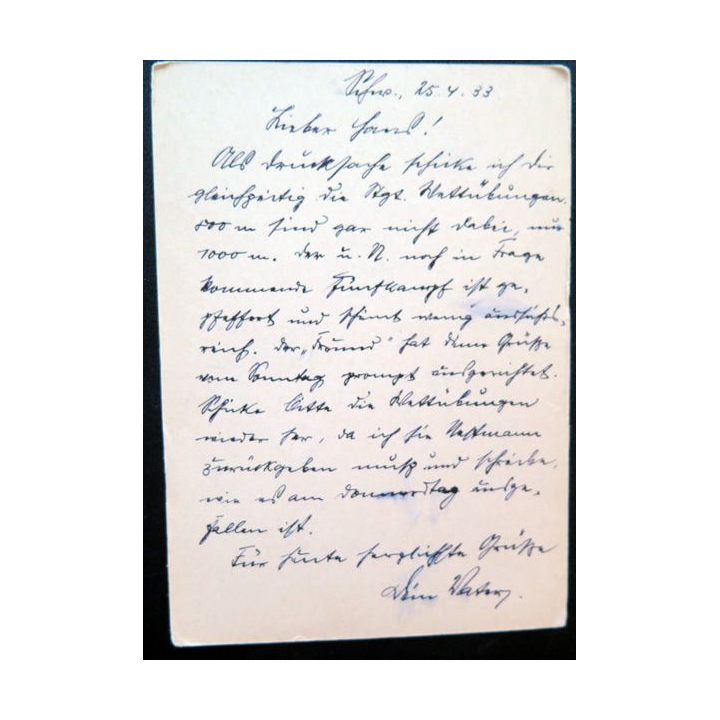 Schw., 25.4.33.
Lieber Hans!
Als Drucksache schicke ich dir
gleichzeitig die Stgt. Wettübungen.
800 m sind gar nicht dabei, nur
1000 m. Der u. U. noch in Frage
kommende Fünfkampf ist ge-
pfeffert und scheint wenig aussichts-
reich. Der „Freund" hat deine Grüße
vom Sonntag prompt ausgerichtet.
Schicke bitte die Wettübungen
wieder her, da ich sie
zurückgeben muß und schreibe,
wie es am Donnerstag ausge-
fallen ist.
Für heute herzlichste Grüße
Dein Vater.